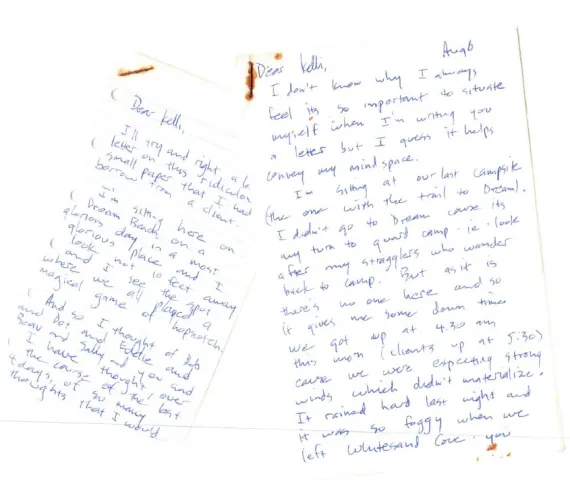 Dear Kelli,
I'll try and right a le
letter on this ridiculous
small paper that I had
borrow from a client
I'm sitting here on
Dream Beach on a
glorious day in a most
glorious place and I
look not 10 feet away
and I see the spot
where we all played a
magical game of hopscotch.
And so I thought of Bob
and Dot and Eddie and
Beau and Sally and you and
I have thought over
the course of the last
4 days, of so many
thoughts that I would
Aug 6
Dear Kelli,
I don't know why I always
feel its so important to situate
myself when I'm writing you
a letter but I guess it helps
convey my mind space.
I'm sitting at our last campsite
(the one with the trail to Dream).
I didn't go to Dream cause its
my turn to guard camp. ie. look
after my stragglers who wander
back to camp. But as it is
there's no one here and so
it gives me some down time
we got up at 4:30 am
this morn (clients up at 5:30)
cause we were expecting strong
winds which didn't materialize.
It rained hard last night and
it was so foggy when we
left Whitesand Cove. you